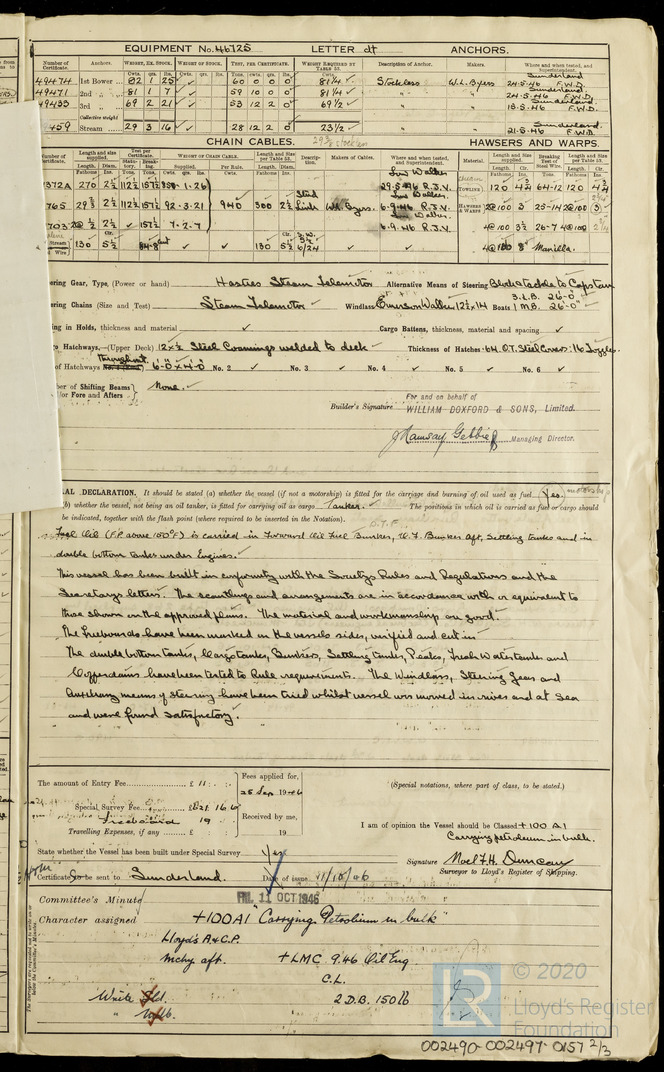 EQUIPMENT No. 46725 LETTER dt ANCHORS.
Number of Certificate. Anchors. WEIGHT, EX. STOCK. WEIGHT OF STOCK. TEST, PER CERTIFICATE. WEIGHT REQUIRED BY TABLE 53. Description of Anchor. Makers. Where and when tested, and Superintendent.
Cwts. qrs. lbs. Cwts. qrs. lbs. Tons. cwts. qrs. lbs. Cwts.
49474 1st Bower 82 1 25 60 0 0 0 81¼ Stockless W.L. Byers Sunderland 24.5.46 F.W.D.
49471 2nd „ 81 1 7 59 10 0 0 81¼ „ „ Sunderland 24.5.46 F.W.D.
49433 3rd „ 69 2 21 53 12 2 0 69½ „ „ Sunderland 18.5.46 F.W.D.
Collective weight
459 Stream 29 3 16 28 12 2 0 23½ „ „ Sunderland 21.5.46 F.W.D.
CHAIN CABLES. HAWSERS AND WARPS.
Number of Certificate. Length and size supplied. Test per Certificate. WEIGHT OF CHAIN CABLE. Length and size per Table 53. Description. Makers of Cables. Where and when tested, and Superintendent. Material. Length and Size supplied. Breaking Test of Steel Wire. Length and Size per Table 53.
1372A 270 2½ 112½ 157½ 29.5.46 R.J.V. TOWLINE 120 4¾ 64-12 120 4¾
765 2½ 112½ 157½ 92.3.21 940 300 2½ Stud Link W.L. Byers. 6.9.46 R.J.V. HAWSERS & WARPS 2@100 3 25-14 2@100 3
703 2½ 157½ 7.2.7 6.9.46 R.J.V. 4@100 3½ 26-7 4@100
130 5½ 84.8 130 5½ 6/24 4@100 8" Manilla.
ering Gear, Type (Power or hand) Hasties Steam Telemotor Alternative Means of Steering Block & tackle to Capstan
ering Chains (Size and Test) Steam Telemotor Windlass Emerson Walker 12½x14 Boats 3.L.B. 26-0" 1 M.B. 26'.0"
ing in Holds, thickness and material Cargo Battens, thickness, material and spacing.
Hatchways,—(Upper Deck) 12x½ Steel Coamings welded to deck Thickness of Hatches .64 O.T. Steel Covers: 16 Toggles.
of Hatchways throughout 6-0 x 4-0 No. 2 No. 3 No. 4 No. 5 No. 6
ber of Shifting Beams
/or Fore and Afters None.
For and on behalf of
Builder's Signature WILLIAM DOXFORD & SONS, Limited.
J Ramsay Gebbie Managing Director.
AL DECLARATION. It should be stated (a) whether the vessel (if not a motorship) is fitted for the carriage and burning of oil used as fuel Yes. motorship
(b) whether the vessel, not being an oil tanker, is fitted for carrying oil as cargo Tanker. The positions in which oil is carried as fuel or cargo should
be indicated, together with the flash point (where required to be inserted in the Notation).
Fuel Oil (F.P. above 150°F) is carried in Forward Oil Fuel Bunker, O.F. Bunker Aft, Settling tanks and in
double bottom tanks under Engines.
This vessel has been built in conformity with the Society's Rules and Regulations and the
Secretarys letters. The scantlings and arrangements are in accordance with or equivalent to
those shown on the approved plans. The material and workmanship are good.
The freeboards have been marked on the vessels sides, verified and cut in
The double bottom tanks, Cargo tanks, Bunkers, Settling tanks, Peaks, Fresh Water tanks and
Cofferdams have been tested to Rule requirements. The Windlass, Steering Gear and
Auxiliary means of steering have been tried whilst vessel was moored in river and at Sea
and were found satisfactory.
The amount of Entry Fee £ 11 : :
Fees applied for, 25 Sep 1946
Special Survey Fee £ 821 16 6
Freeboard 19
Received by me,
Travelling Expenses, if any £ : : 19
(Special notations, where part of class, to be stated.)
I am of opinion the Vessel should be Classed +100 A1
Carrying petroleum in bulk.
State whether the Vessel has been built under Special Survey Yes
Signature Noel F.H. Duncan
Surveyor to Lloyd's Register of Shipping.
Certificate to be sent to Sunderland Date of issue 11/10/46
Committee's Minute FRI. 11 OCT 1946
Character assigned +100A1 "Carrying Petroleum in bulk"
Lloyd's A & C.P.
mchy aft. +LMC 9.46 Oil Eng
C.L.
Write Sld. 2 D.B. 150 lb
The Surveyors are requested not to write on or below the Committee's Minute.
LR
© 2020
Lloyd's Register
Foundation
002490-002497-0157 2/3